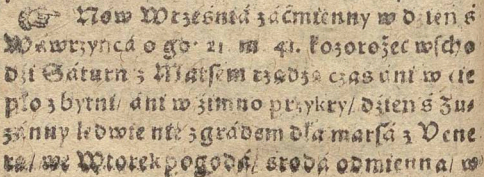 ☞ Now Wrześniá záćmienny w dzień ś
Wáwrzyńcá o go: 21. m. 41. kozorożec wscho
dźi Sáturn z Marsem rządzą czas áni w cie
pło zbytni/ áni w źimno przykry/ dźień ś Zu-
zánny ledwie nie z grádem dla marsá z Vene
rą/ we Wtorek pogodá/ srodá odmienna/ w